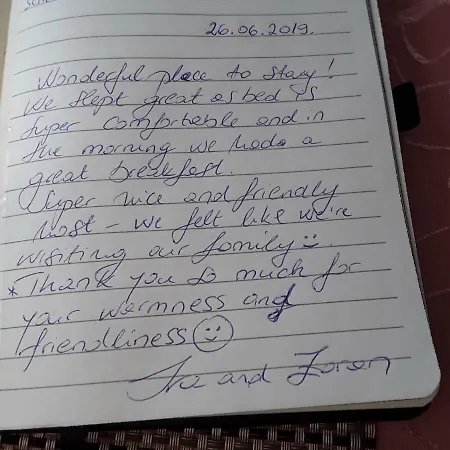 26.06.2019.
Wonderful place to stay!
We slept great as bed is
super comfortable and in
the morning we had a
great breakfast.
Super nice and friendly
host - we felt like we're
wisiting our family :)
* Thank you so much for
your warmness and
friendliness ☺
and Zoran